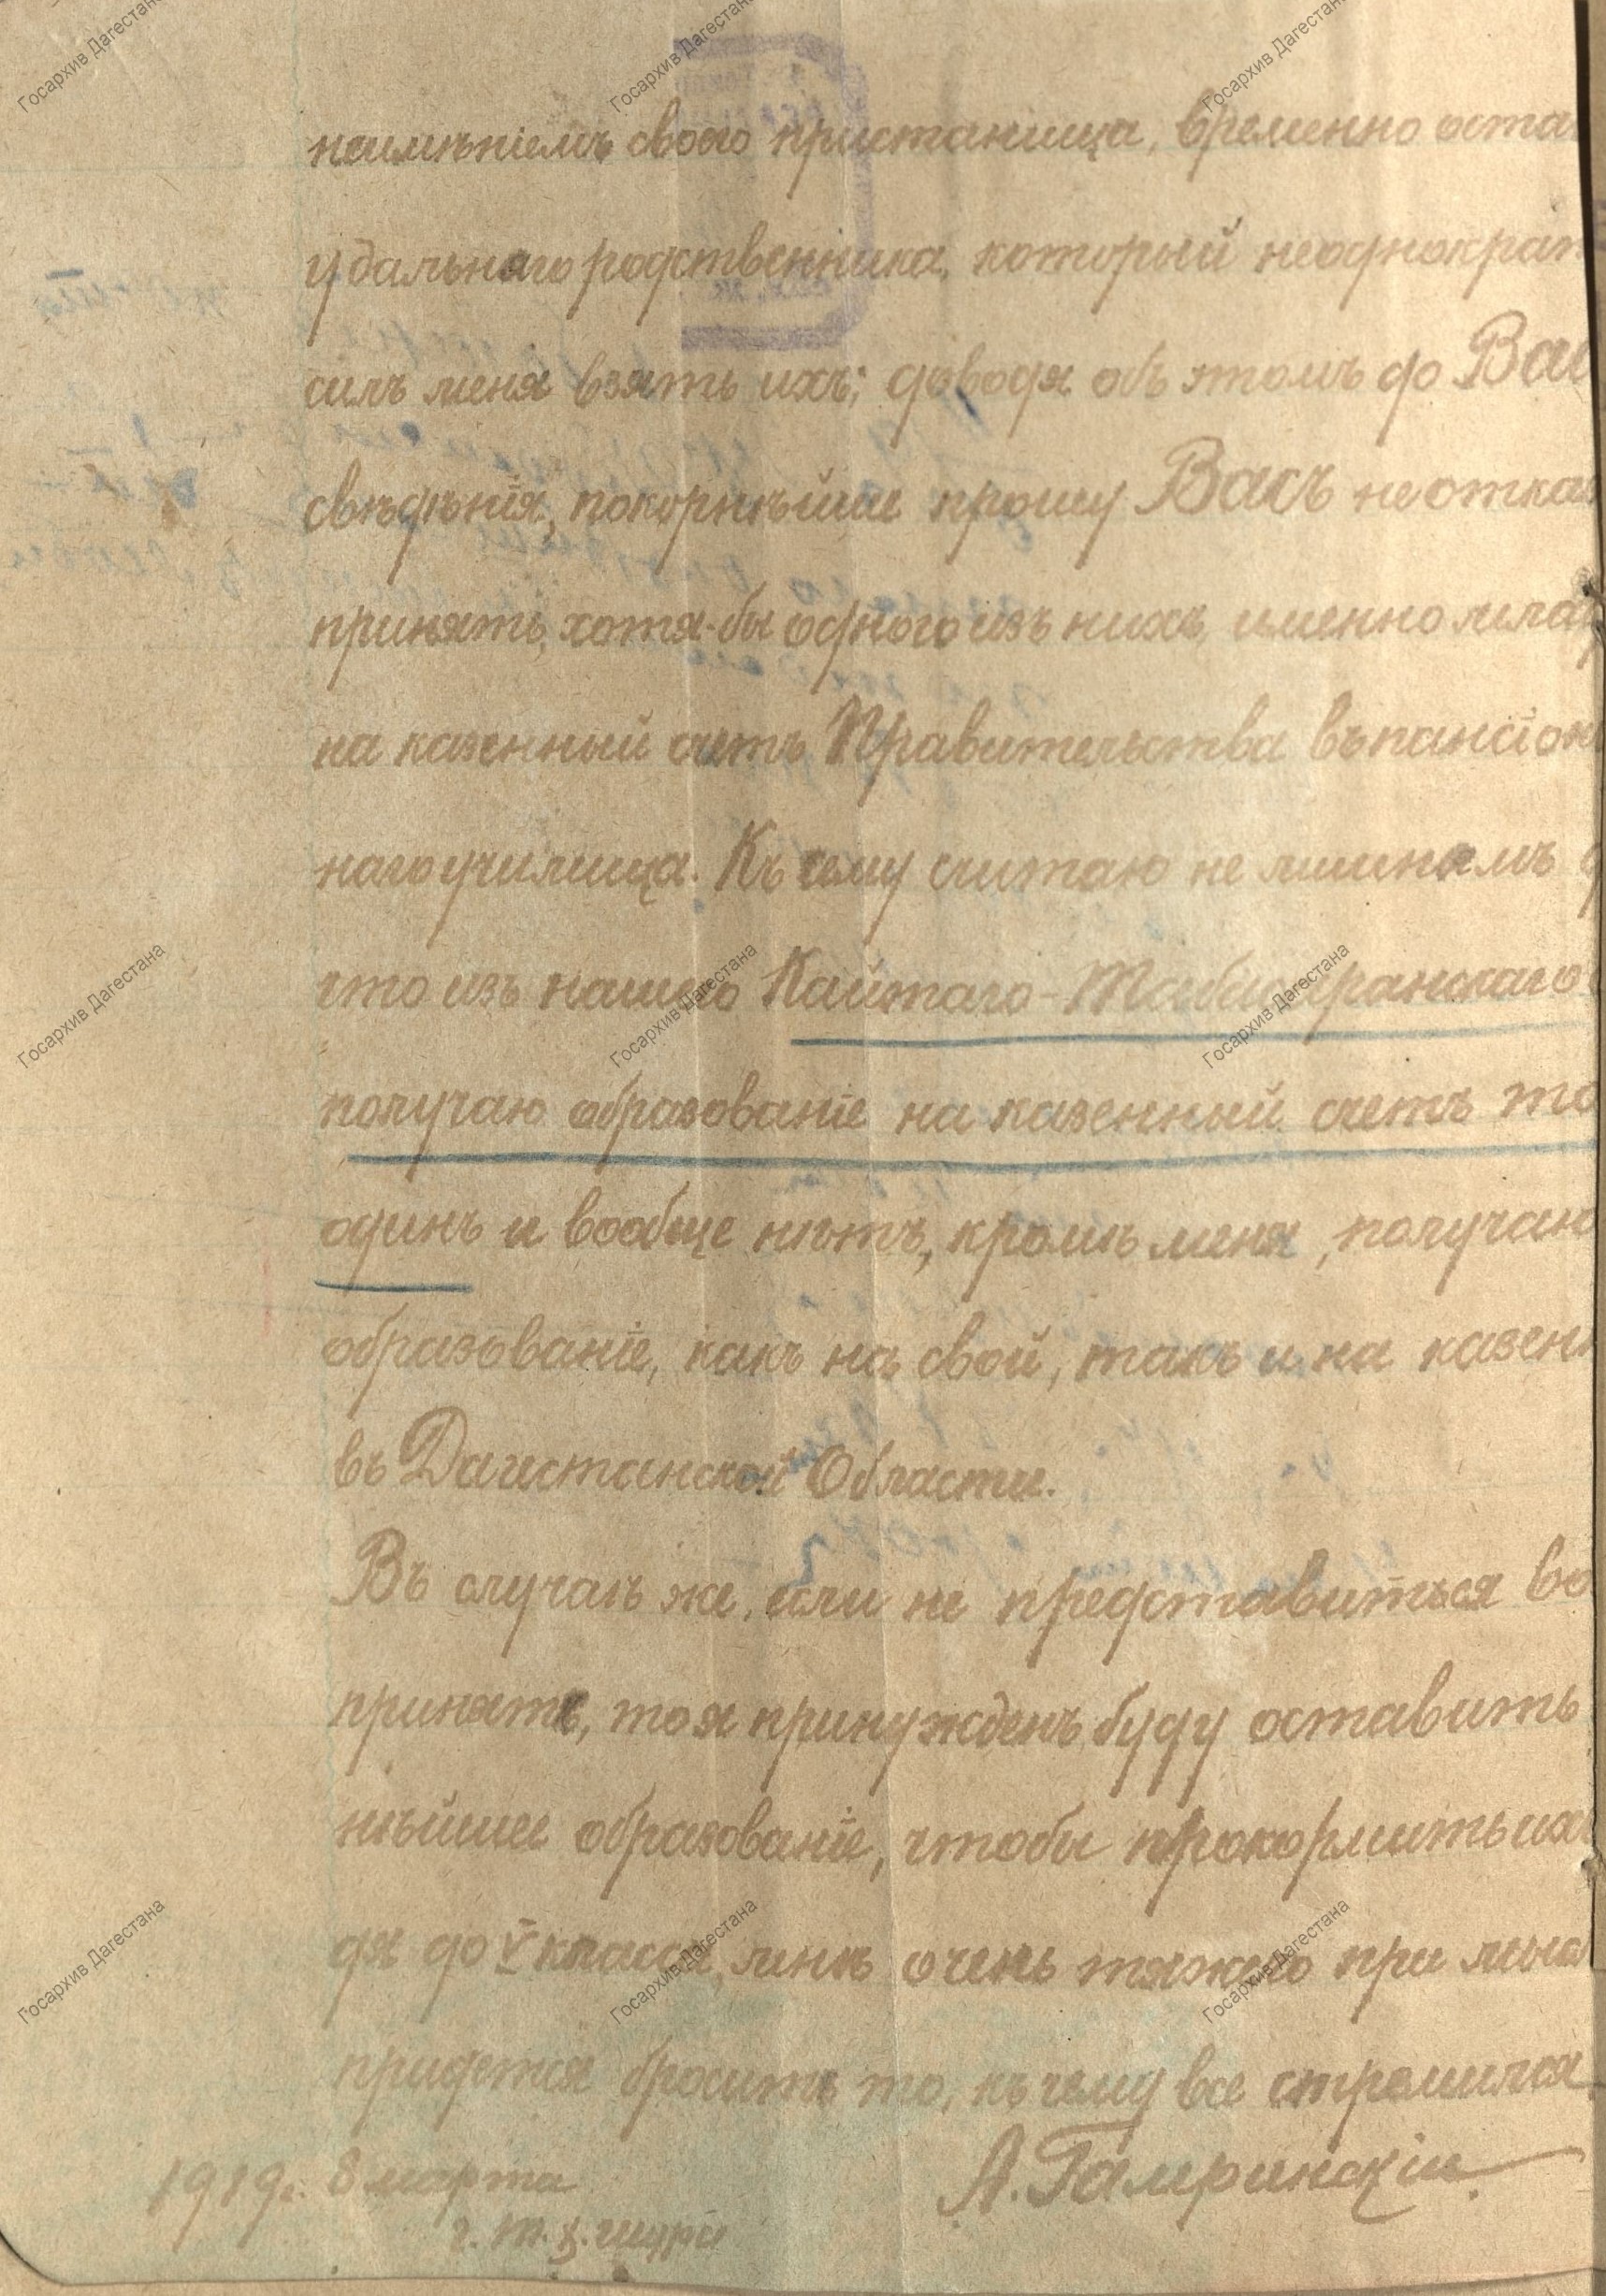 неимѣніемъ своего пристанища, временно оста
у дальняго родственника, который неоднократ
силъ меня взять ихъ; доводя объ этомъ до Ваш
свѣдѣнія, покорнѣйше прошу Васъ не отказ
принять, хотя-бы одного изъ нихъ, именно млад
на казенный счетъ Правительства въ пансіон
наго училища. Къ сему считаю не лишнемъ д
что изъ нашего Кайтаго-Табасаранскаго
получаю образованіе на казенный счетъ то
одинъ и вообще нѣтъ, кромѣ меня, получаю
образованіе, какъ на свой, такъ и на казен
въ Дагестанской Области.
Въ случаѣ же, если не представиться во
принять, то я принужденъ буду оставить
нѣйшее образованіе, чтобы прокормить их
дя до V класса, мнѣ очень тяжело при мысл
придется бросить то, къ чему все стремился
1919г. 8 марта А. Гамринскій
г. Т. Х. Шура
Госархив Дагестана
Госархив Дагестана
Госархив Дагестана
Госархив Дагестана
Госархив Дагестана
Госархив Дагестана
Госархив Дагестана
Госархив Дагестана
Госархив Дагестана